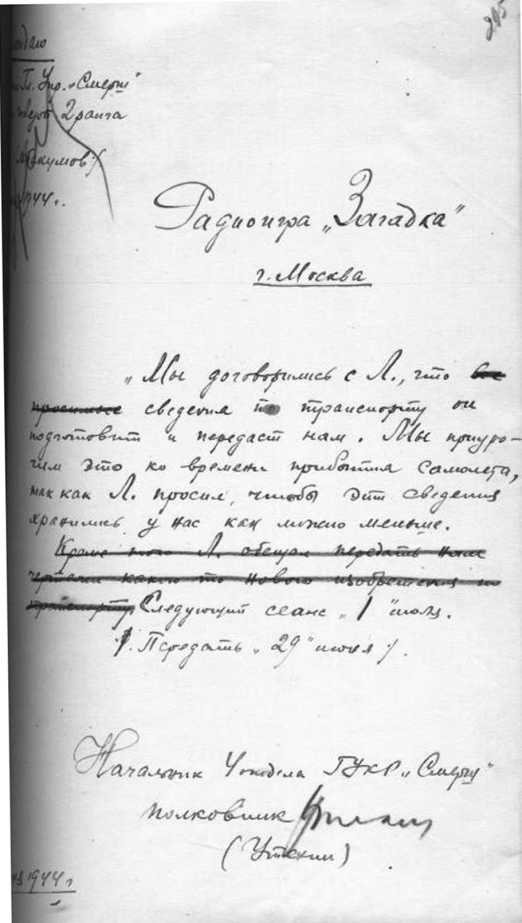 205
Гл. Упр. „Смерш"
2 ранга
Абакумов/
1944 г.
Радиоигра „Загадка"
г. Москва
„Мы договорились с Л., что все
просимые сведения по транспорту он
подготовит и передаст нам. Мы приуро-
чим это ко времени прибытия самолета,
так как Л. просил, чтобы эти сведения
хранились у нас как можно меньше.
Кроме того Л. обещал передать нам
чертежи какого то нового изобретения по
транспорту. Следующий сеанс „1" июля.
/. Передать „29" июня /.
Начальник 4 отдела ГУКР „Смерш"
полковник
(Утехин)
1944 г